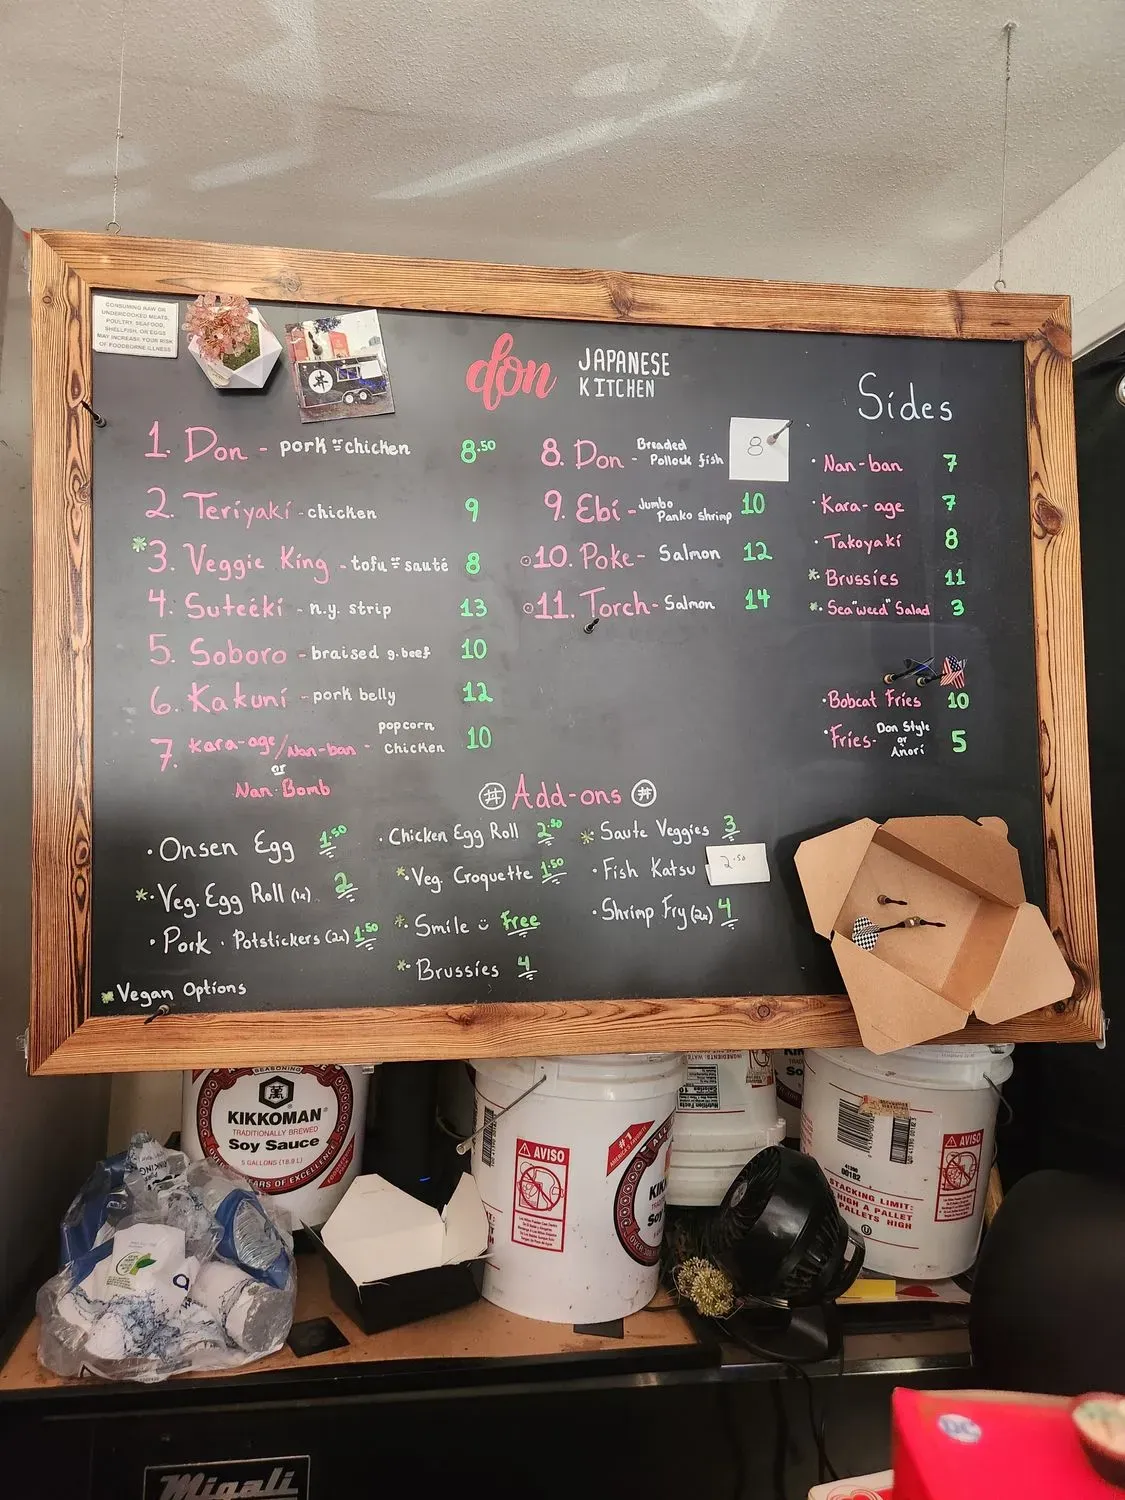 CONSUMING RAW OR
UNDERCOOKED MEATS,
POULTRY, SEAFOOD,
SHELLFISH, OR EGGS
MAY INCREASE YOUR RISK
OF FOODBORNE ILLNESS
don JAPANESE
KITCHEN
1. Don - pork or chicken 8.50
2. Teriyaki - chicken 9
*3. Veggie King - tofu or sauté 8
4. Suteēki - n.y. strip 13
5. Soboro - braised g.beef 10
6. Kakuni - pork belly 12
7. Kara-age/Nan-ban - popcorn chicken 10
or
Nan-Bomb
8. Don - Breaded Pollock fish 8
9. Ebi - Jumbo Panko shrimp 10
10. Poke - Salmon 12
11. Torch - Salmon 14
Sides
· Nan-ban 7
· Kara-age 7
· Takoyaki 8
* Brussies 11
*· Sea"weed" Salad 3
· Bobcat Fries 10
· Fries - Don Style or Anori 5
# Add-ons #
· Onsen Egg 1.50
*· Veg. Egg Roll (1x) 2
· Pork · Potstickers (2x) 1.50
· Chicken Egg Roll 2.50
*· Veg. Croquette 1.50
*· Smile Free
*· Brussies 4
*· Saute Veggies 3
· Fish Katsu 2.50
· Shrimp Fry (2x) 4
* Vegan Options
SEASONING
KIKKOMAN
TRADITIONALLY BREWED
Soy Sauce
5 GALLONS (18.9 L)
YEARS OF EXCELLENCE
AVISO
AVISO
STACKING LIMIT:
HIGH A PALLET
PALLETS HIGH
Migali